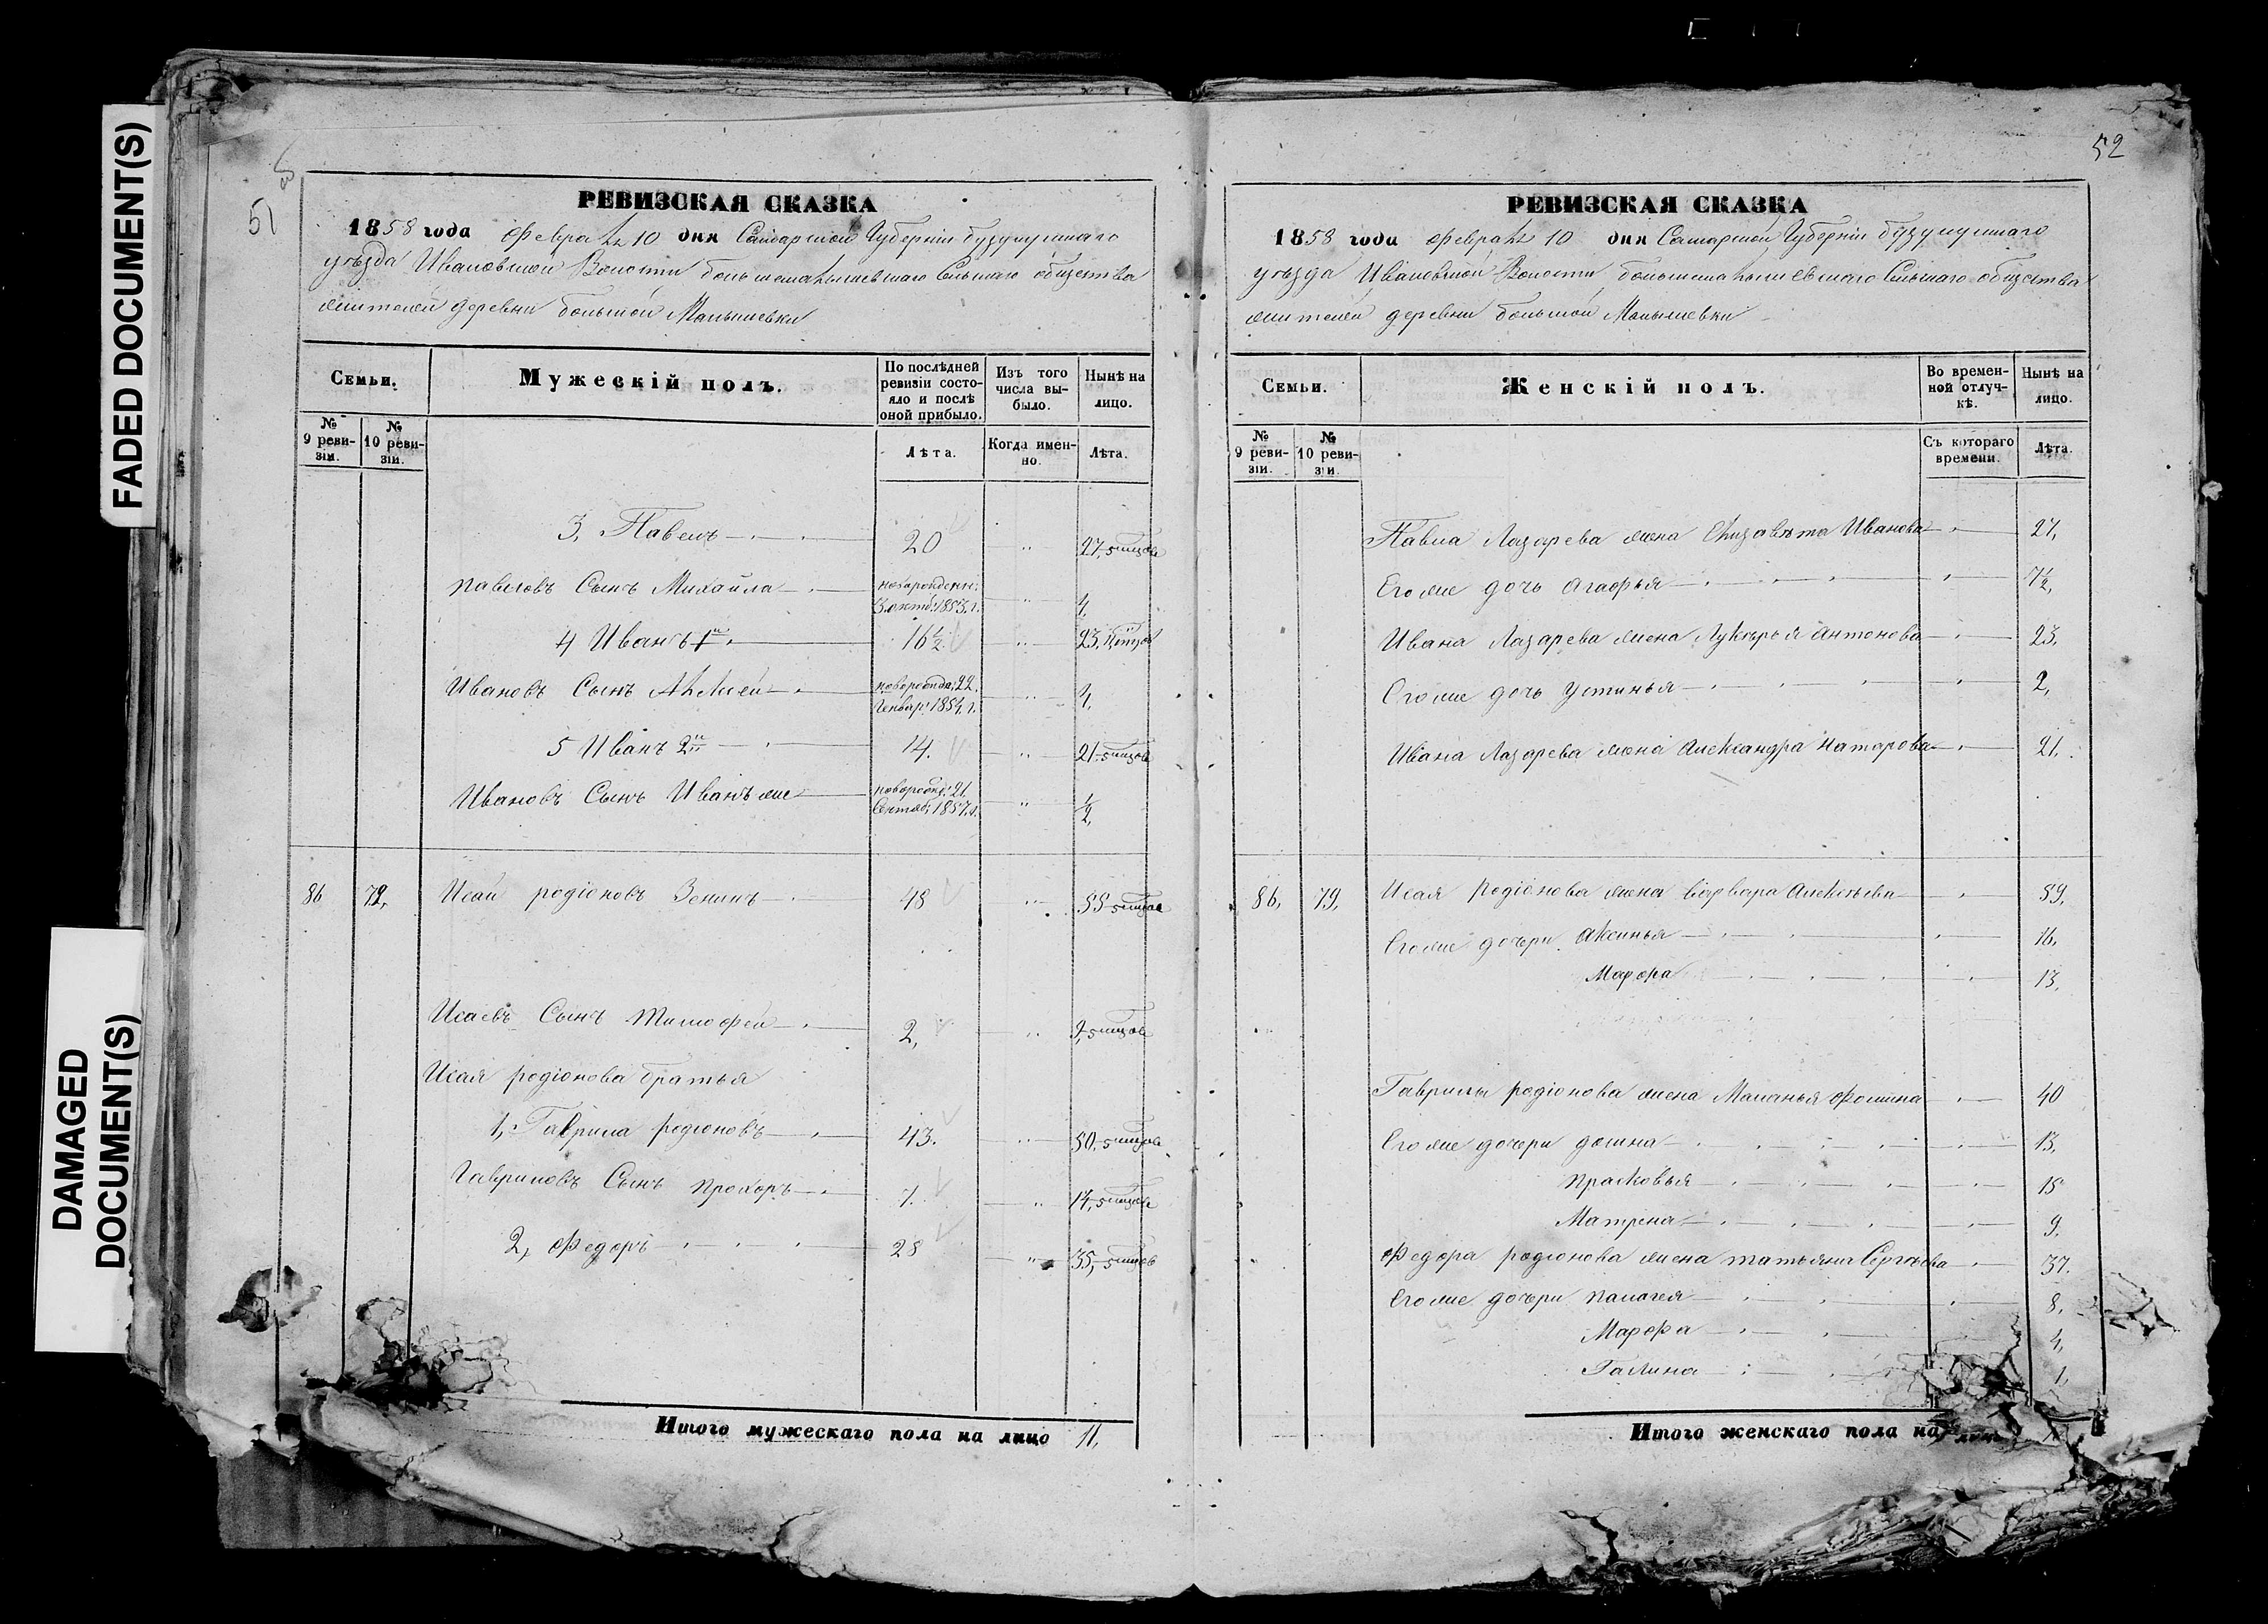 FADED DOCUMENT(S)
DAMAGED
DOCUMENT(S)
51
РЕВИЗСКАЯ СКАЗКА
1858 года Февраля 10 дня Самарской Губерніи бузулукскаго
уѣзда Ивановской Волости большемалышевскаго Сельскаго общества
жителей деревни большой Малышевки
Семьи.
Мужескій полъ.
По послѣдней ревизіи состояло и послѣ оной прибыло.
Изъ того числа выбыло.
Нынѣ на лицо.
№ 9 ревизіи.
№ 10 ревизіи.
Лѣта.
Когда именно.
Лѣта.
3, Павелъ 20 " 27,
Павловъ Сынъ Михайла 1853. г. " 4,
4 Иванъ 1й 16½ " 23,
Ивановъ Сынъ Алексей 22. Генвар: 1854. г. " 4,
5 Иванъ 2й 14. " 21
Ивановъ Сынъ Иванъ же 21. Сентяб: 1857. г. " ½,
86 79, Исай родіоновъ Зенинъ 48 " 55
Исаевъ Сынъ Тимофей 2, " 9,
Исая родіонова братья
1, Гаврила родіоновъ 43. " 50,
Гавриловъ Сынъ Прохоръ 7. " 14,
2, Федоръ 28 " 35,
Итого мужескаго пола на лицо 11,
52
РЕВИЗСКАЯ СКАЗКА
1858 года Февраля 10 дня Самарской Губерніи бузулукскаго
уѣзда Ивановской Волости большемалышевскаго Сельскаго общества
жителей деревни большой Малышевки
Семьи.
Женскій полъ.
Во временной отлучкѣ.
Нынѣ на лицо.
№ 9 ревизіи.
№ 10 ревизіи.
Съ котораго времени.
Лѣта.
Павла Лазарева жена Елизавѣта Иванова " 27,
Его же дочь Агафья " ½,
Ивана Лазарева жена Лукѣрья Антонова " 23,
Его же дочь Устинья " 2,
Ивана Лазарева жена Александра Натарова " 21.
86, 79, Исая Родіонова жена Варвара Алексѣева " 59,
Его же дочери Аксинья " 16,
Марфа " 13,
Гаврилы родіонова жена Маланья Фомина " 40
Его же дочери Домна " 13,
Прасковья " 15
Матрена " 9.
Федора родіонова жена Татьяна Сергѣева " 37.
Его же дочери Палагея " 8,
Марфа " 4,
Галина 1,
Итого женскаго пола на